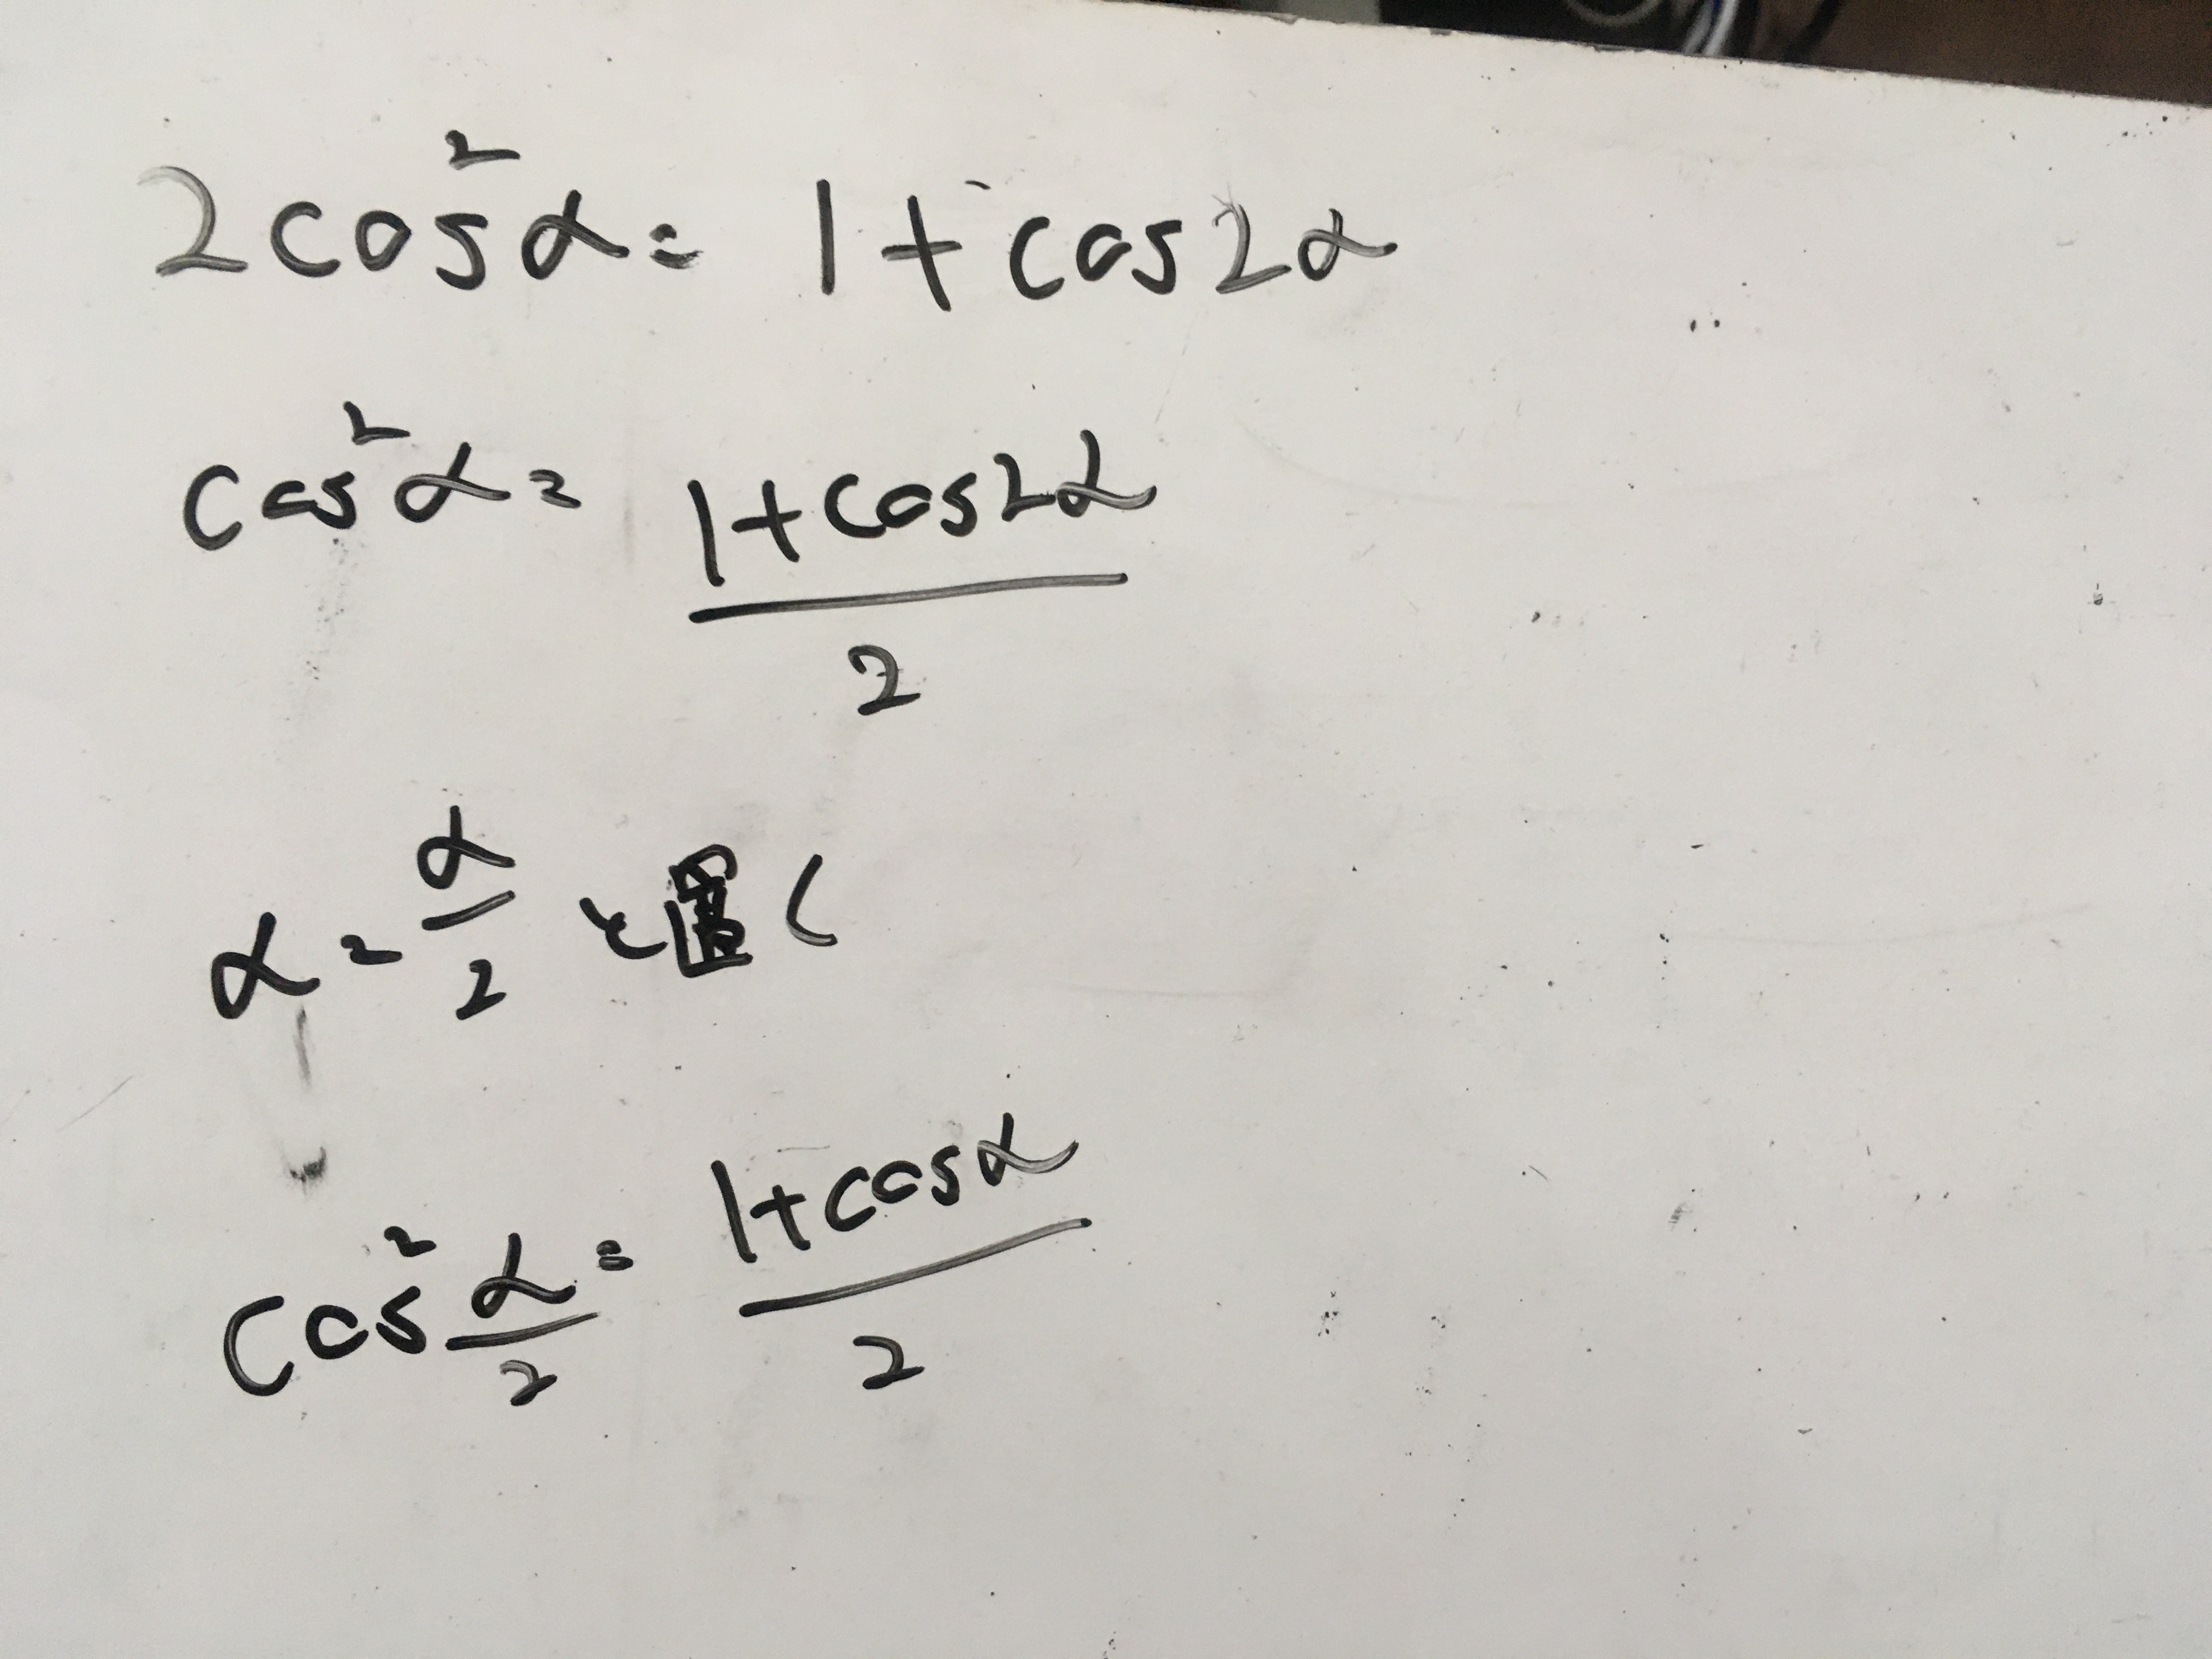 2cos²α = 1+cos2α
cos²α = (1+cos2α)/2
α = α/2 と置く
cos²α/2 = (1+cosα)/2